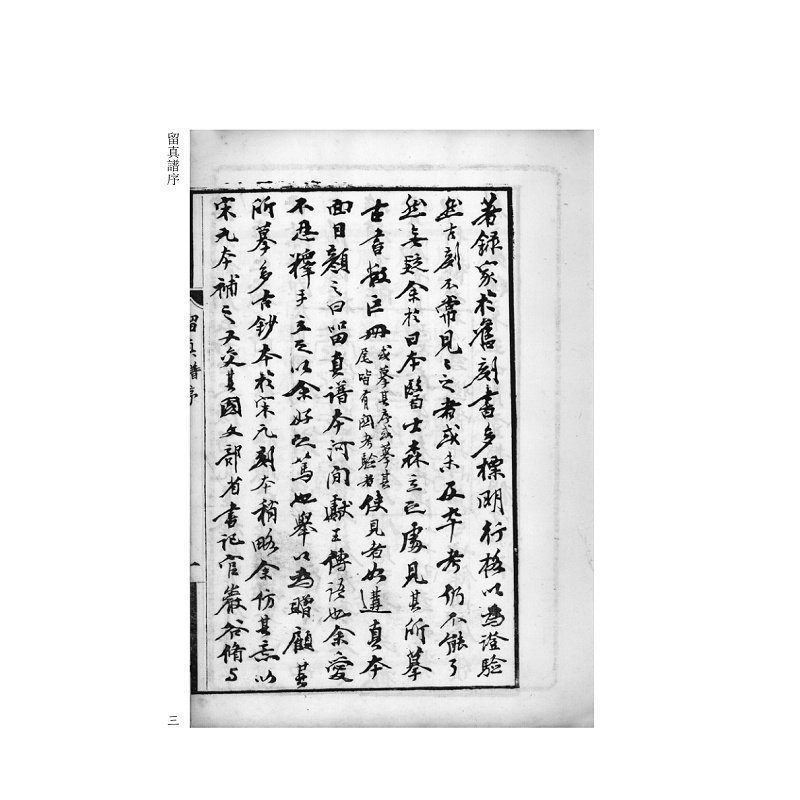 著錄家於舊刻書多標明行格以為證驗
然古刻不常見〻之者或未及卒考仍不能了
然無疑余於日本醫士森立之處見其所摹
古書數巨冊或摹其序或摹其尾皆有關考驗者使見者如遘真本
面目顏之曰留真譜本河間獻王傳語也余愛
不忍釋手立之以余好之篤也舉以為贈顧其
所摹多古鈔本於宋元刻本稍略余仿其意以
宋元本補之又交其國文部省書記官巖谷脩與
留真譜序
一
留真譜序
三